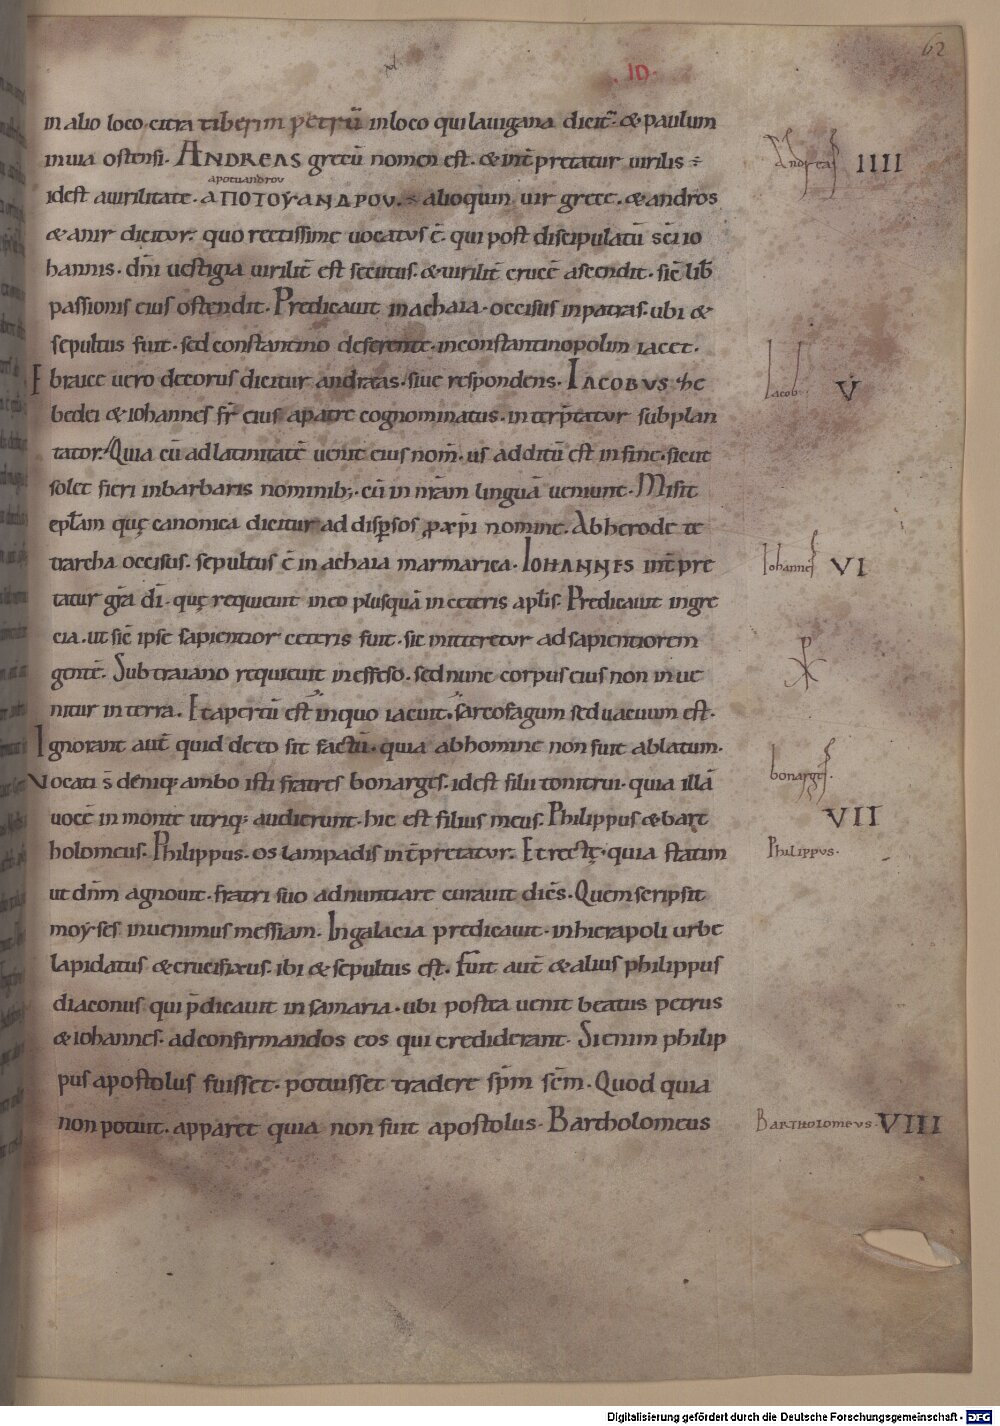 62
.10.
in alio loco citra tiberim petrū in loco qui lauigana dicit̄. & paulum
in uia ostensi. ANDREAS grecū nomen est. & int̄pretatur uirilis
Andreas IIII
apotuandrov
idest auirilitate. aΠΟΤΟΥΑΝΔΡΟΥ. alioquin uir grece. & andros
& anir dicitur. quo rectissime uocatus ē. qui post discipulatū sc̄i io
hannis. dn̄i uestigia uirilit̄ est secutus. & uirilit̄ crucē ascendit. sic̄ lib̄
passionis eius ostendit. Predicauit in achaia. occisus in patras. ubi &
sepultus fuit. sed constantino deferente. in constantinopolim iacet.
Ebraice uero decorus dicitur andreas. siue respondens. IACOBUS zhe
Iacob. V
bedei & iohannes fr̄ eius a patre cognominatus. interp̄tatur subplan
tator. Quia cū ad latinitatē uenit eius nom̄. us additū est in fine. sicut
solet fieri in barbaris nominib;. cū in nr̄am linguā ueniunt. Misit
epl̄am quę canonica dicitur ad disp̄sos p xp̄i nomine. Ab herode te
trarcha occisus. sepultus ē in achaia marmarica. IOHANNES int̄pre
Iohannes VI
tatur gr̄a dī. quę requieuit in eo plusquā in ceteris apl̄is. Predicauit in gre
cia. ut sic̄ ipse sapientior ceteris fuit. sic mitteretur ad sapientiorem
gentē. Sub traiano requieuit in effeso. sed nunc corpus eius non inue
nitur in terra. Et apertū est in quo iacuit. sarcofagum sed uacuum est.
Ignorant aut̄ quid de eo sit factū. quia ab homine non fuit ablatum.
Vocati s̄ deniq; ambo isti fratres bonarges. idest filii tonitrui. quia illā
bonarges.
uocē in monte utriq; audierunt. hic est filius meus. Philippus & bart
VII
holomeus. Philippus. os lampadis int̄pretatur. Et rectę. quia statim
Philippus.
ut dn̄m agnouit. fratri suo adnuntiare curauit dicēs. Quem scripsit
moyses inuenimus messiam. In galacia predicauit. in hierapoli urbe
lapidatus & crucifixus. ibi & sepultus est. Fuit aut̄ & alius philippus
diaconus qui p̄dicauit in samaria. ubi postea uenit beatus petrus
& iohannes. ad confirmandos eos qui crediderant. Si enim philip
pus apostolus fuisset. potuisset tradere sp̄m sc̄m. Quod quia
non potuit. apparet quia non fuit apostolus. Bartholomeus
Bartholomeus. VIII
Digitalisierung gefördert durch die Deutsche Forschungsgemeinschaft - DFG